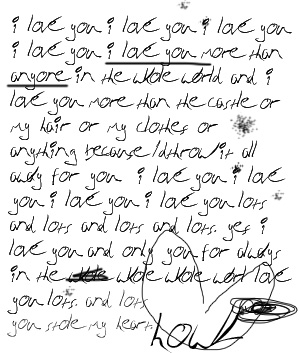 i love you i love you i love you
i love you i love you more than
anyone in the whole world and i
love you more than the castle or
my hair or my clothes or
anything because i'd throw it all
away for you i love you i love
you i love you i love you lots
and lots and lots and lots. yes i
love you and only you for always
in the whole whole love
you lots. and lots
you stole my heart.
how